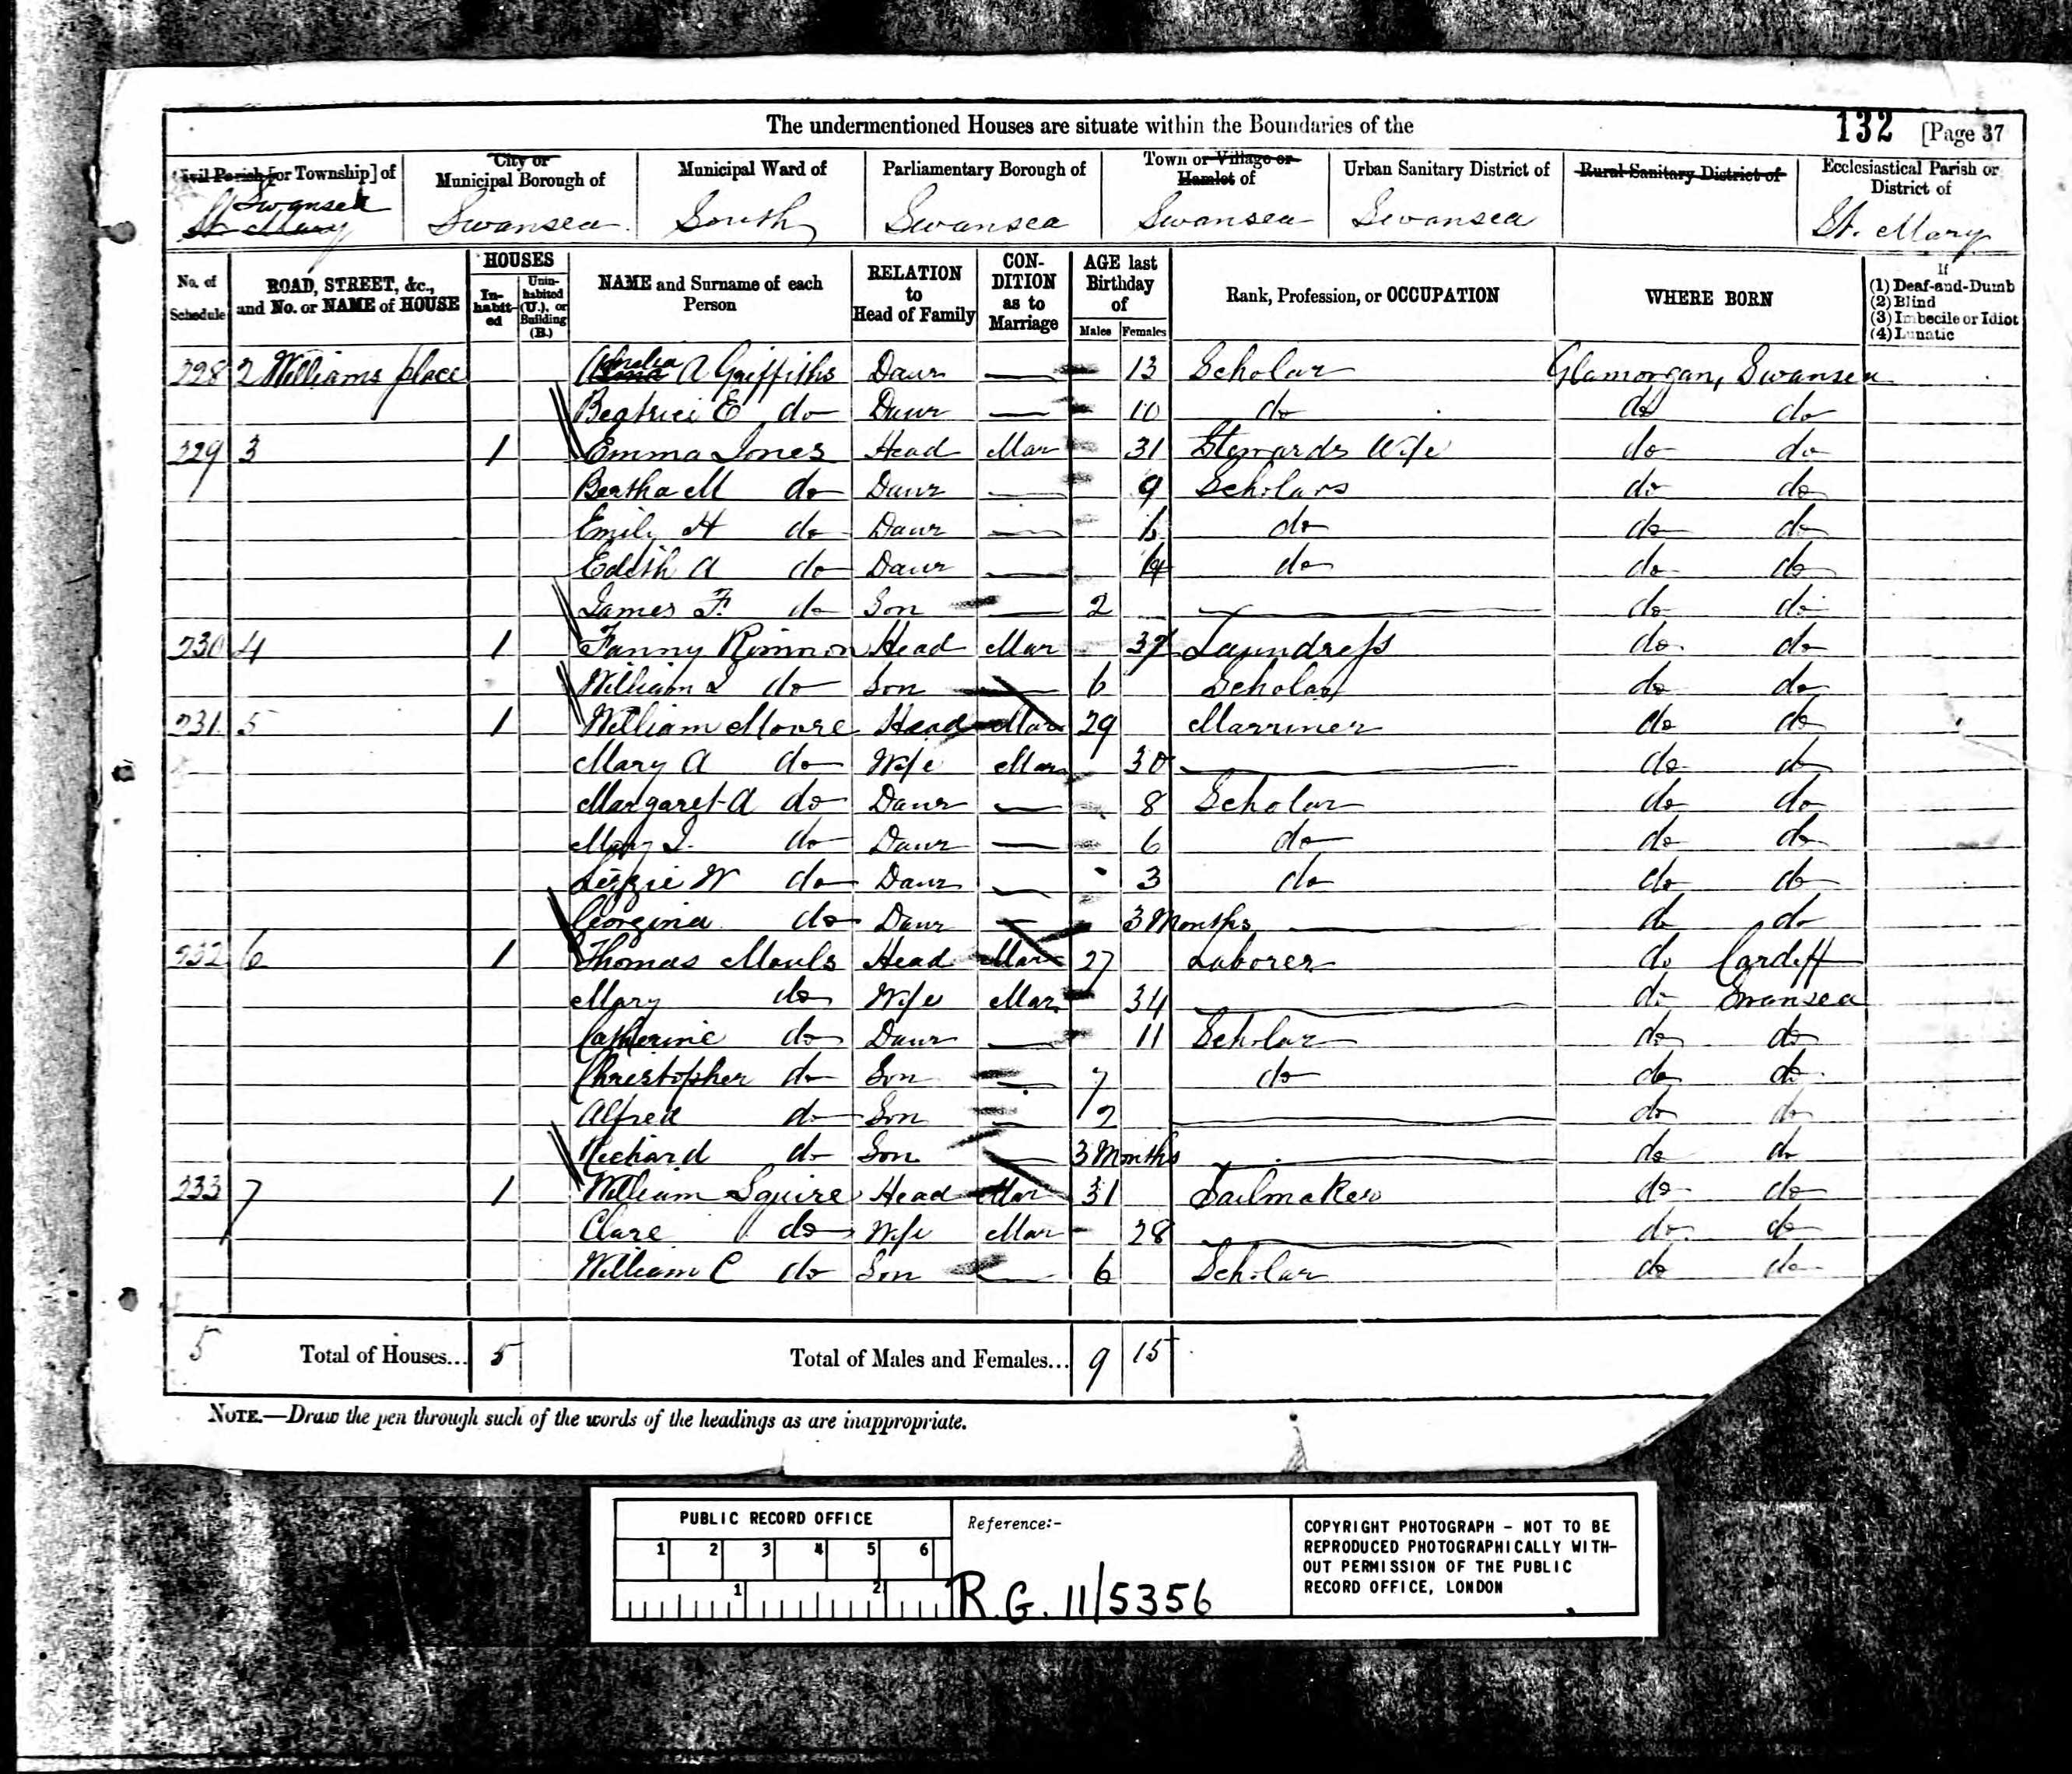 The undermentioned Houses are situate within the Boundaries of the 132 [Page 37
Civil Parish [or Township] of City or Municipal Borough of Municipal Ward of Parliamentary Borough of Town or Village or Hamlet of Urban Sanitary District of Rural Sanitary District of Ecclesiastical Parish or District of
Swansea
St. Mary Swansea South Swansea Swansea Swansea St. Mary
No. of Schedule ROAD, STREET, &c., and No. or NAME of HOUSE HOUSES Inhabited Uninhabited (U.), or Building (B.) NAME and Surname of each Person RELATION to Head of Family CONDITION as to Marriage AGE last Birthday of Males Females Rank, Profession, or OCCUPATION WHERE BORN If (1) Deaf-and-Dumb (2) Blind (3) Imbecile or Idiot (4) Lunatic
228 2 Williams place A Griffiths Daur — 13 Scholar Glamorgan, Swansea
Beatrice E do Daur — 10 do do do
229 3 1 Emma Jones Head Mar 31 Stewards Wife do do
Bertha M do Daur — 9 Scholars do do
Emily H do Daur — 6 do do do
Edith A do Daur — 4 do do do
James F. do Son — 2 — do do
230 4 1 Fanny Rimmon Head Mar 37 Laundress do do
William J do Son — 6 Scholar do do
231 5 1 William Moore Head Mar 29 Marriner do do
Mary A do Wife Mar 30 — do do
Margaret A do Daur — 8 Scholar do do
Mary J. do Daur — 6 do do do
Lizzie W do Daur — 3 do do do
Georgina do Daur — 3 Months — do do
232 6 1 Thomas Mauls Head Mar 27 Laborer do Cardiff
Mary do Wife Mar. 34 — do Swansea
Catherine do Daur — 11 Scholar do do
Christopher do Son — 7 do do do
Alfred do Son — 2 — do do
Richard do Son — 3 Months — do do
233 7 1 William Squire Head Mar 31 Sailmaker do do
Clare do Wife Mar 28 — do do
William C do Son — 6 Scholar do do
5 Total of Houses... 5 Total of Males and Females... 9 15
NOTE.—Draw the pen through such of the words of the headings as are inappropriate.
PUBLIC RECORD OFFICE
1 2 3 4 5 6
1 2
Reference:-
R.G. 11/5356
COPYRIGHT PHOTOGRAPH - NOT TO BE
REPRODUCED PHOTOGRAPHICALLY WITH-
OUT PERMISSION OF THE PUBLIC
RECORD OFFICE, LONDON